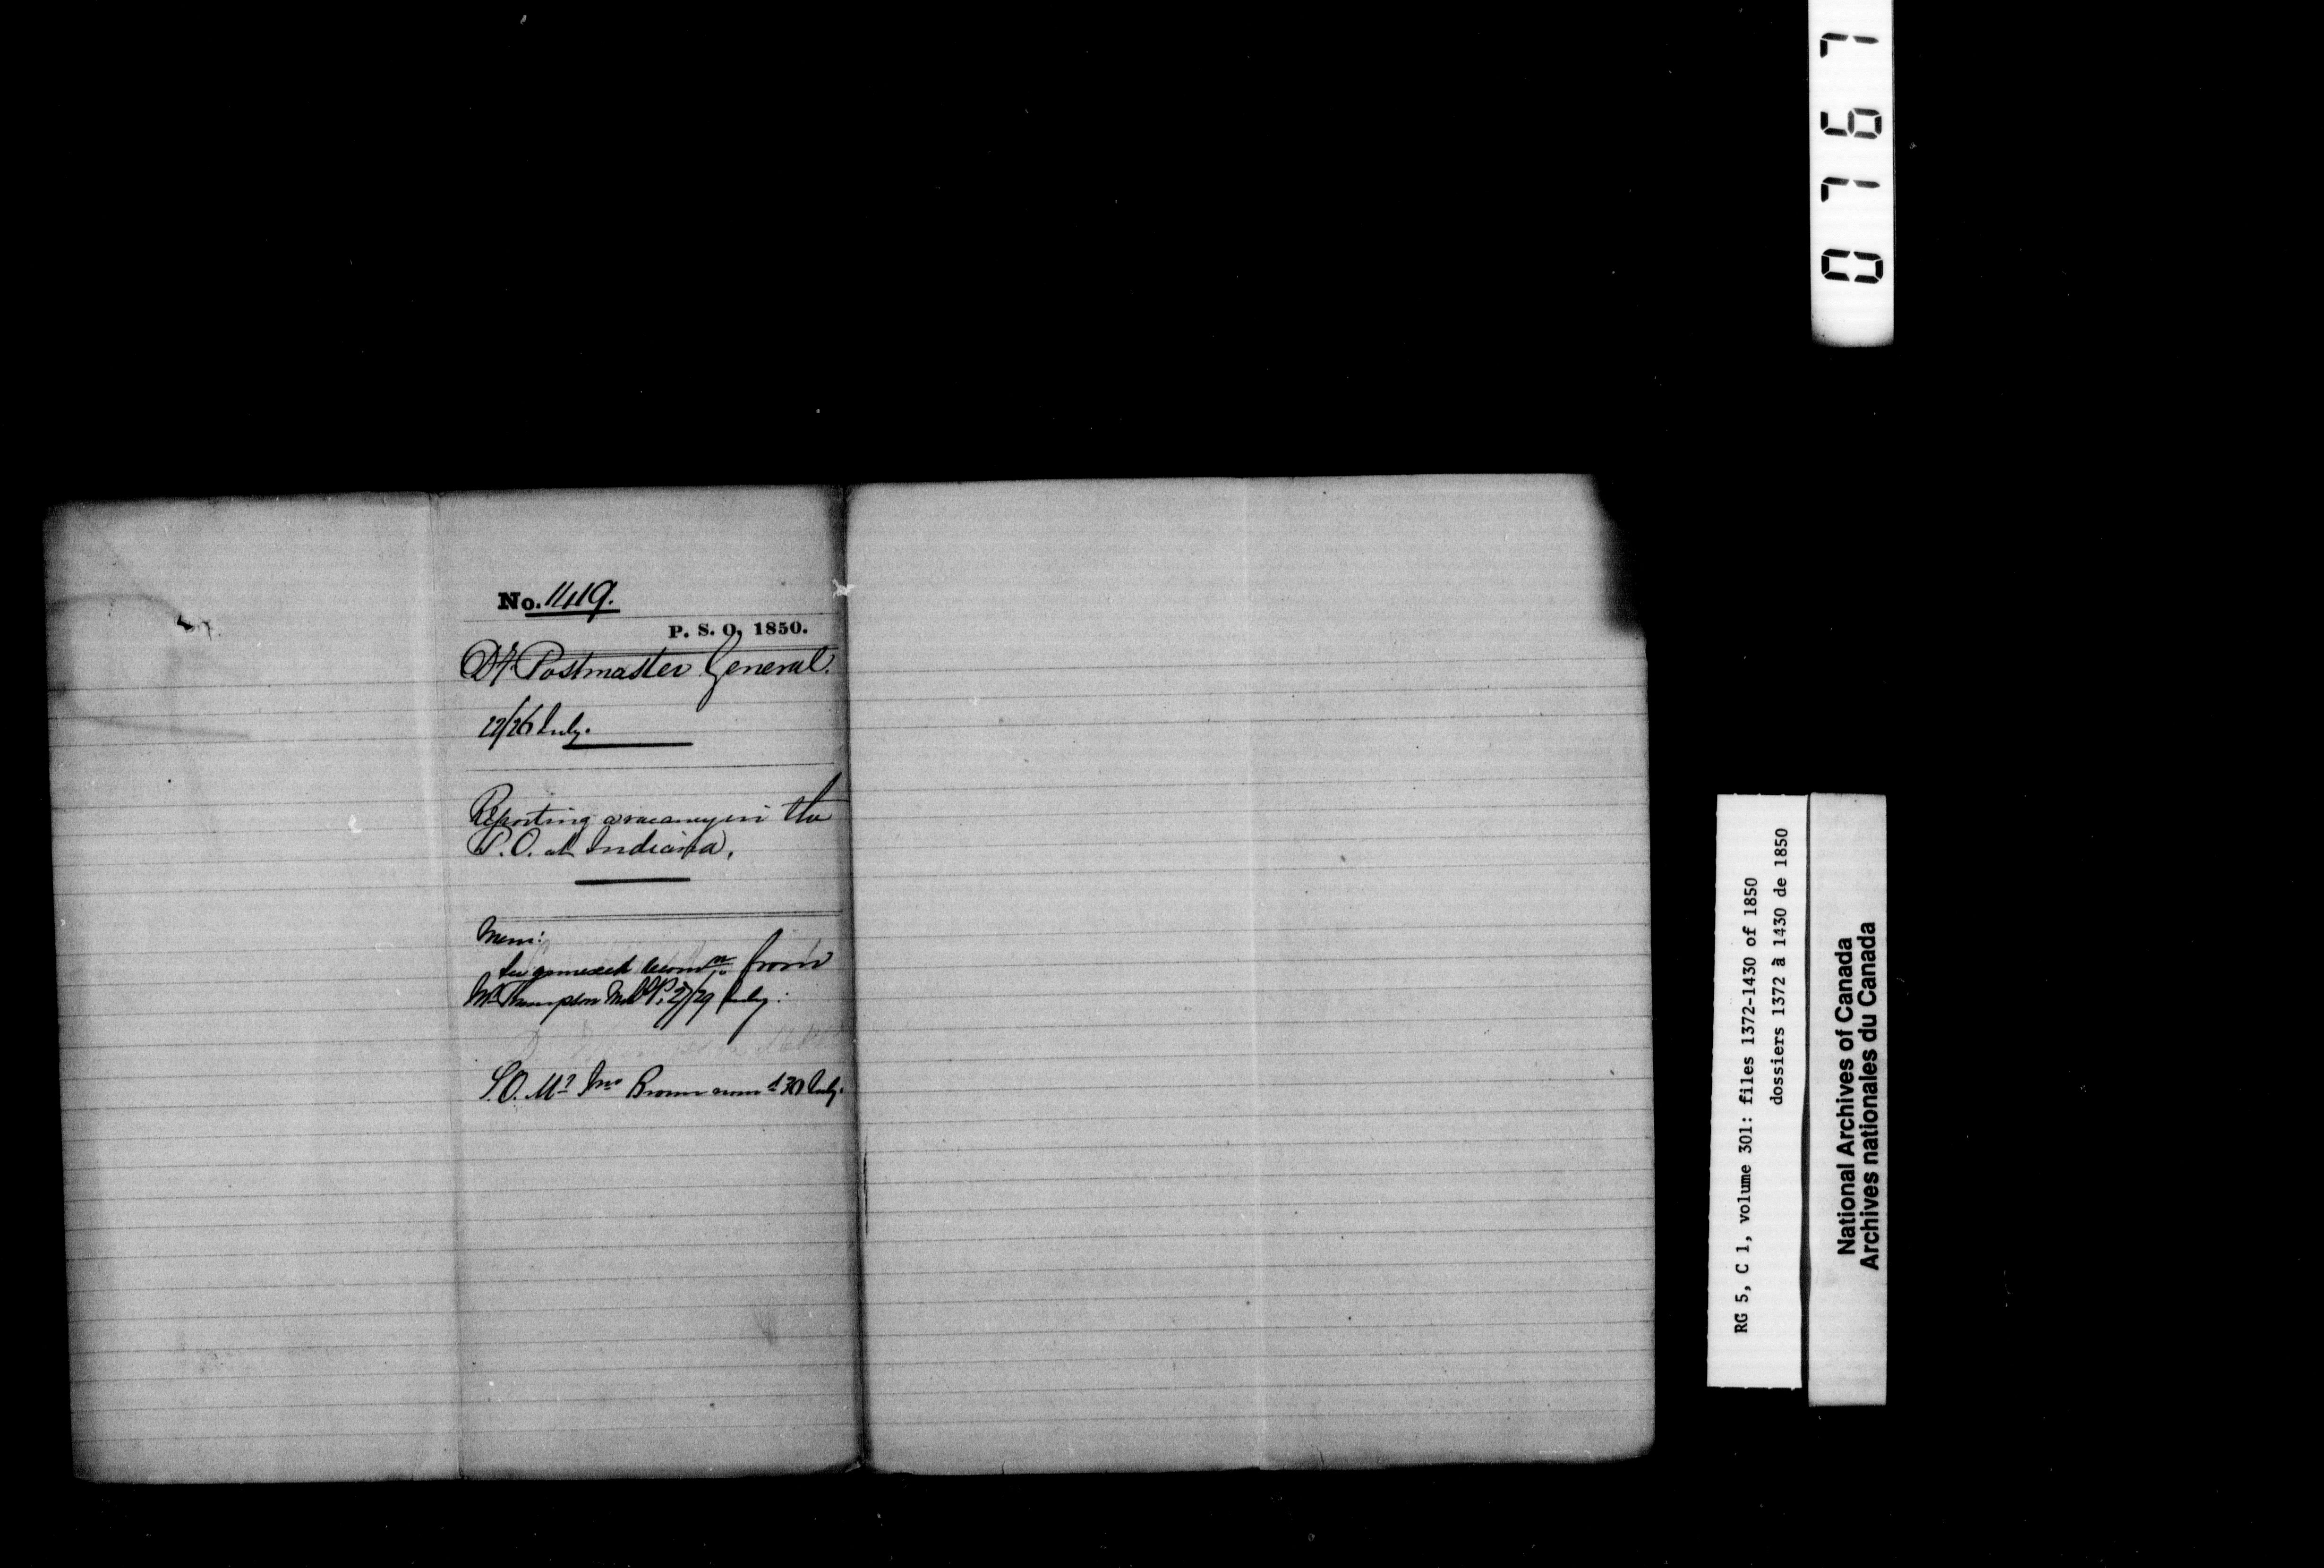 No. 1419.
P. S. O, 1850.
Dy. Postmaster General.
22/26 July.
Reporting a vacancy in the
P.O. at Indiana.
Mem:
See annexed recomn. from
Mr. Thompson M.P.P. 27/29 July.
P.O. Mr. Jno Brown 30 July.
0767
RG 5, C 1, volume 301: files 1372-1430 of 1850
dossiers 1372 à 1430 de 1850
National Archives of Canada
Archives nationales du Canada